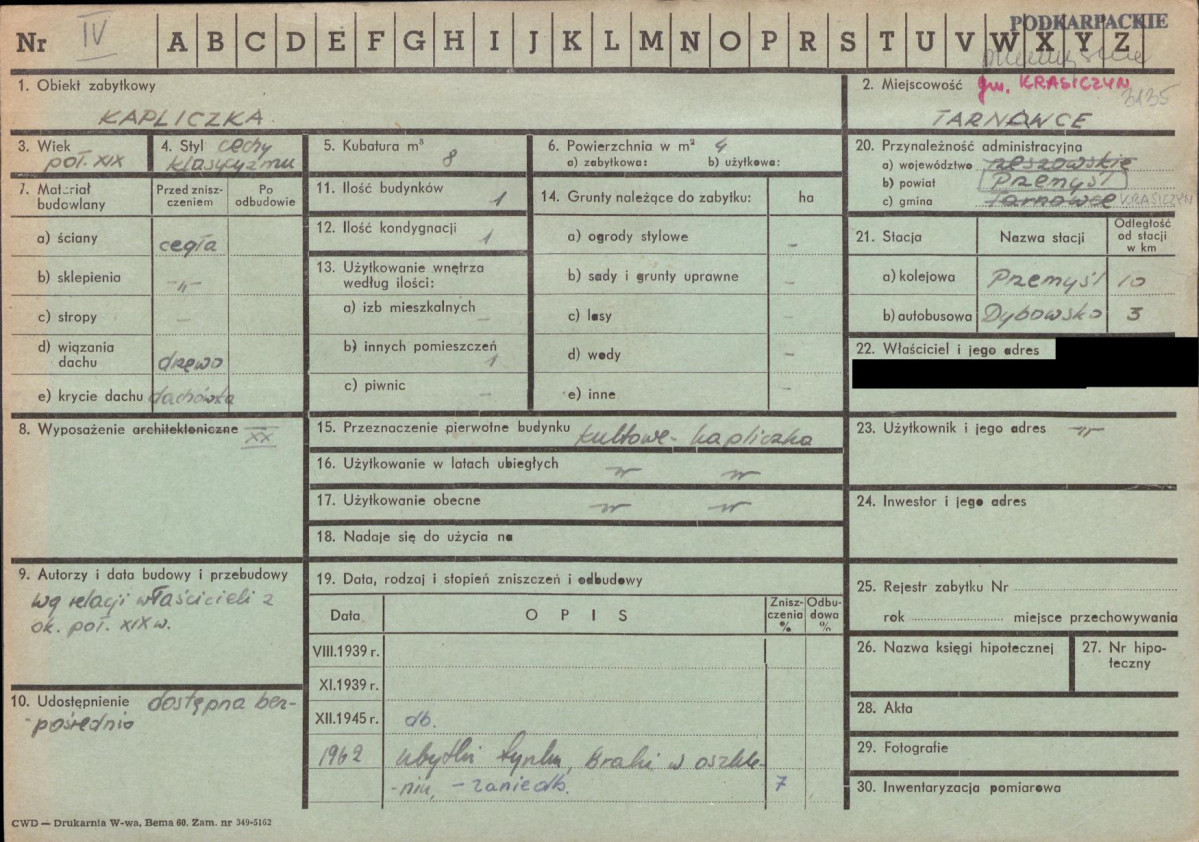 PODKARPACKIE
Nr IV A B C D E F G H I J K L M N O P R S T U V W X Y Z
1. Obiekt zabytkowy
KAPLICZKA
2. Miejscowość gm. KRASICZYN
3135
TARNAWCE
3. Wiek
poł. XIX
4. Styl cechy
klasycyzmu
5. Kubatura m³
8
6. Powierzchnia w m² 4
a) zabytkowa: b) użytkowa:
20. Przynależność administracyjna
a) województwo rzeszowskie
b) powiat Przemyśl
c) gmina Tarnawce KRASICZYN
7. Materiał
budowlany
Przed znisz-
czeniem
Po
odbudowie
a) ściany cegła
b) sklepienia -„-
c) stropy –
d) wiązania
dachu drzewo
e) krycie dachu dachówka
11. Ilość budynków 1
12. Ilość kondygnacji 1
13. Użytkowanie wnętrza
według ilości:
a) izb mieszkalnych –
b) innych pomieszczeń 1
c) piwnic –
14. Grunty należące do zabytku: ha
a) ogrody stylowe –
b) sady i grunty uprawne –
c) lasy –
d) wody –
e) inne –
21. Stacja Nazwa stacji
Odległość
od stacji
w km
a) kolejowa Przemyśl 10
b) autobusowa Dybowsko 3
22. Właściciel i jego adres
8. Wyposażenie architektoniczne XX
15. Przeznaczenie pierwotne budynku kultowe - kapliczka
16. Użytkowanie w latach ubiegłych -„- -„-
17. Użytkowanie obecne -„- -„-
18. Nadaje się do użycia na
23. Użytkownik i jego adres -„-
24. Inwestor i jego adres
9. Autorzy i data budowy i przebudowy
wg relacji właścicieli z
ok. poł. XIX w.
10. Udostępnienie dostępna bez-
-pośrednio
19. Data, rodzaj i stopień zniszczeń i odbudowy
Data OPIS
Znisz-
czenia
%
Odbu-
dowa
%
VIII.1939 r.
XI.1939 r.
XII.1945 r. db.
1962 ubytki tynku, braki w oszkle-
-niu, – zaniedb. 7
25. Rejestr zabytku Nr
rok miejsce przechowywania
26. Nazwa księgi hipotecznej
27. Nr hipo-
teczny
28. Akta
29. Fotografie
30. Inwentaryzacja pomiarowa
CWD — Drukarnia W-wa, Bema 60. Zam. nr 349-5162